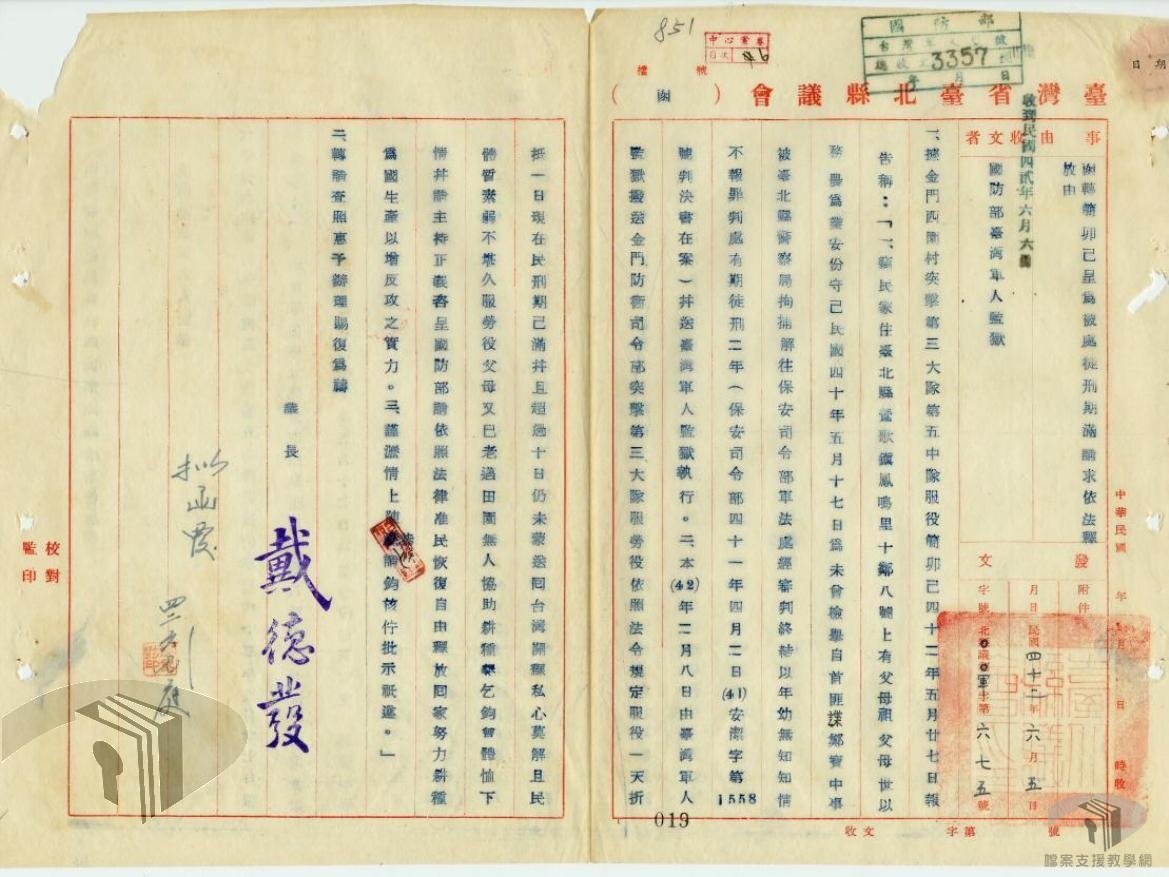 851
中心檔卷
目次 46
檔 號
國防部
總收文 3357 號
年 月 日
日期
臺灣省臺北縣議會（函）
收到民國四貳年六月六日
事由
收文者
函轉簡卯己呈為被處徒刑期滿請求依法釋
放由
國防部臺灣軍人監獄
發文
附件
月日 民國四十二年六月五日
字號 北議軍字第六七五號
中華民國 年 月 日 時收
收文 字第 號
一、據金門西園村突擊第三大隊第五中隊服役簡卯己四十二年五月廿七日報
告稱：「一、竊民家住臺北縣鶯歌鎮鳳鳴里十鄰八號上有父母祖父母世以
務農為業安份守己民國四十年五月十七日為未曾檢舉自首匪諜鄭寶中事
被臺北縣警察局拘捕解往保安司令部軍法處經審判終結以年幼無知知情
不報罪判處有期徒刑二年（保安司令部四十一年四月二日(41)安潔字第1558
號判決書在案）幷送臺灣軍人監獄執行。二、本(42)年二月八日由臺灣軍人
監獄撥送金門防衛司令部突擊第三大隊服勞役依照法令規定服役一天折
019
抵一日現在民刑期已滿幷且超過十日仍未蒙送回台灣開釋私心莫解且民
體質素弱不堪久服勞役父母又已老邁田園無人協助耕種舉乞鈞會體恤下
情幷請主持正義咨呈國防部請依照法律准民恢復自由釋放回家努力耕種
為國生產以增反攻之實力。三、謹瀝情上陳請鈞核佇批示祇遵。」
二、轉請查照惠予辦理賜復為禱
議長
戴德發
擬函覆
校對
監印
檔案支援教學網